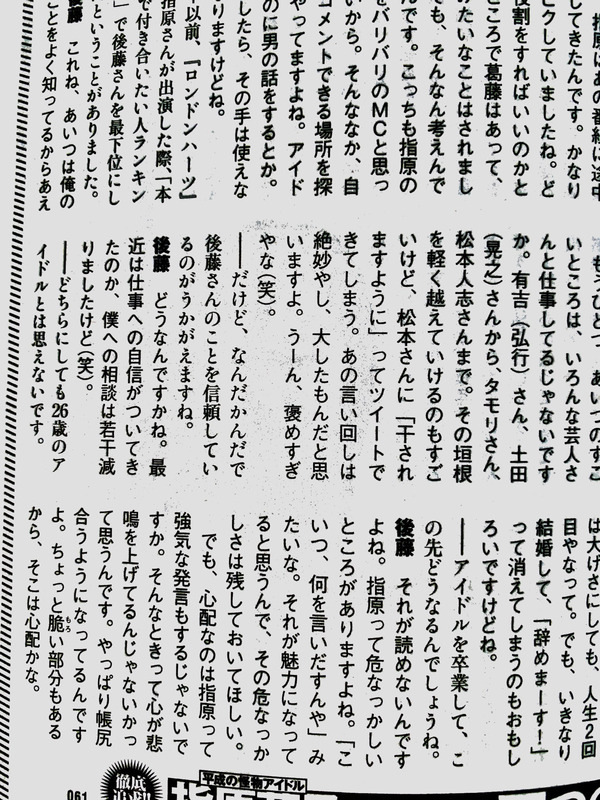 指原はあの番組に途中
してきたんです。かなり
ビクしていましたね。ど
役割をすればいいのかと
ところで葛藤はあって、
みたいなことはされまし
でも、そんなん考えんで
んです。こっちも指原の
をバリバリのMCと思っ
いから。そんななか、自
コメントできる場所を探
やってますよね。アイド
のに男の話をするとか。
したら、その手は使えな
りますけどね。
以前、『ロンドンハーツ』
指原さんが出演した際、「本
で付き合いたい人ランキン
」で後藤さんを最下位にし
ということがありました。
後藤　これね、あいつは俺の
ことをよく知ってるからあえ
もうひとつ、あいつのすご
いところは、いろんな芸人さ
んと仕事してるじゃないです
か。有吉（弘行）さん、土田
（晃之）さんから、タモリさん、
松本人志さんまで。その垣根
を軽く越えていけるのもすご
いけど、松本さんに「干され
ますように」ってツイートで
きてしまう。あの言い回しは
絶妙やし、大したもんだと思
いますよ。うーん、褒めすぎ
やな（笑）。
──だけど、なんだかんだで
後藤さんのことを信頼してい
るのがうかがえますね。
後藤　どうなんですかね。最
近は仕事への自信がついてき
たのか、僕への相談は若干減
りましたけど（笑）。
──どちらにしても26歳のア
イドルとは思えないです。
は大げさにしても、人生2回
目やなって。でも、いきなり
結婚して、「辞めまーす！」
って消えてしまうのもおもし
ろいですけどね。
──アイドルを卒業して、こ
の先どうなるんでしょうね。
後藤　それが読めないんです
よね。指原って危なっかしい
ところがありますよね。「こ
いつ、何を言いだすんや」み
たいな。それが魅力になって
ると思うんで、その危なっか
しさは残しておいてほしい。
でも、心配なのは指原って
強気な発言もするじゃないで
すか。そんなときって心が悲
鳴を上げてるんじゃないかっ
て思うんです。やっぱり帳尻
合うようになってるんです
よ。ちょっと脆い部分もある
から、そこは心配かな。
061
徹底
平成の怪物アイドル